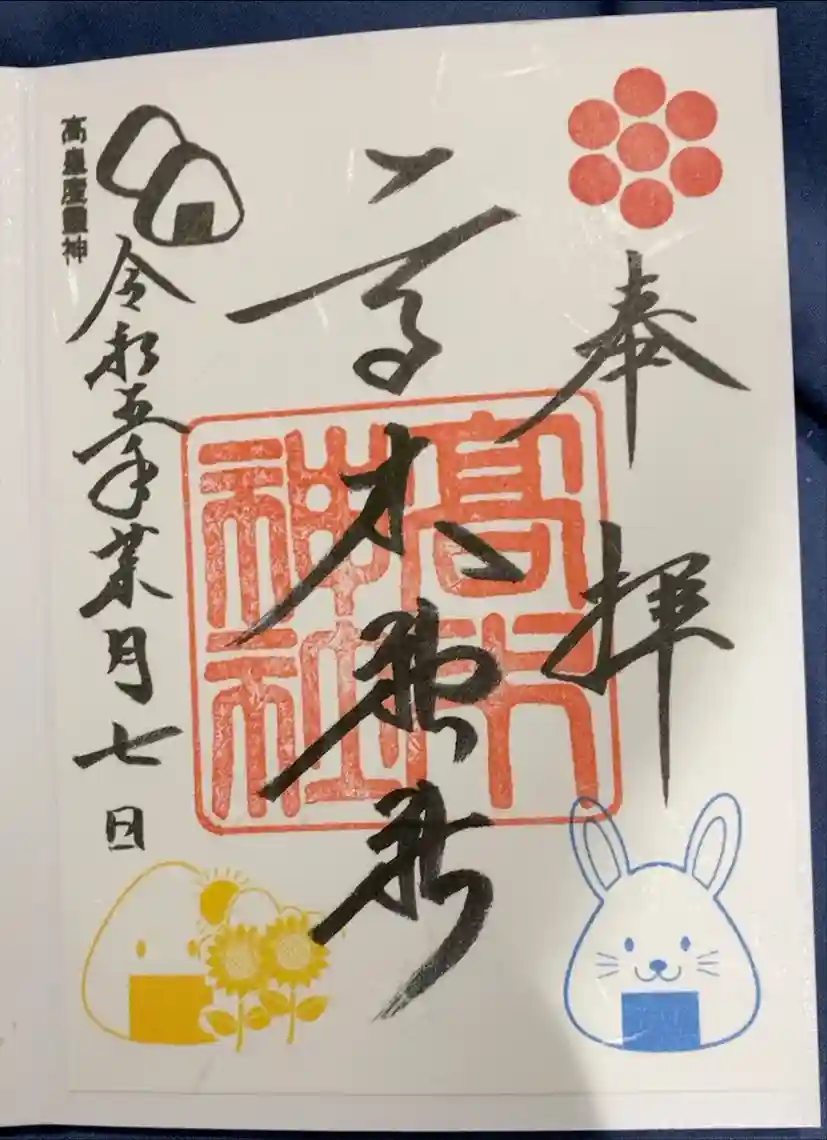 奉拝
高木神社
高木
神社
令和五年葉月七日
高皇産靈神